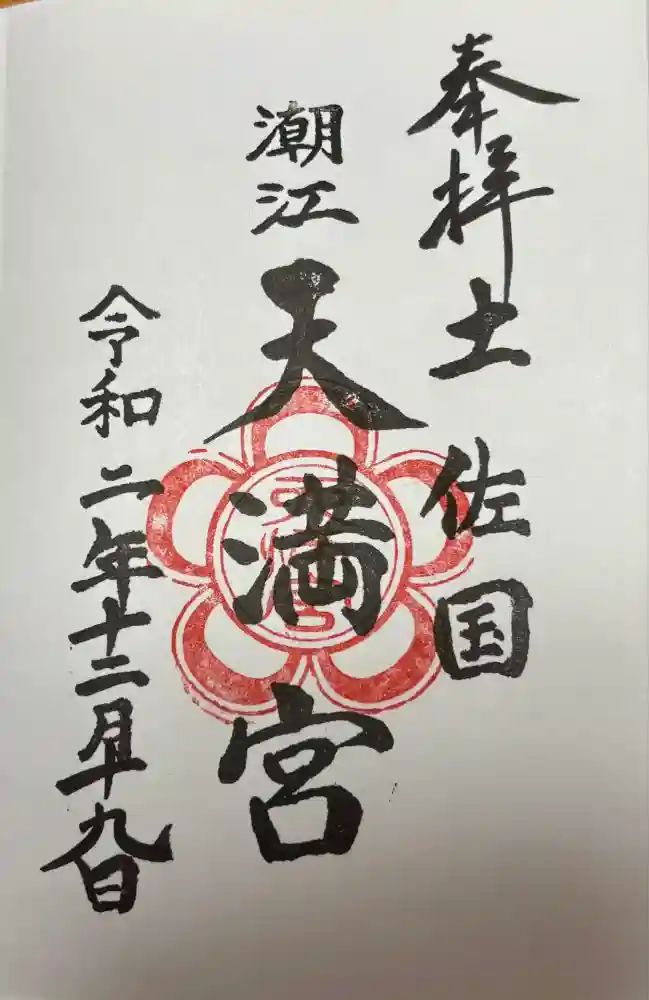 奉拝土佐国
潮江天満宮
令和二年十二月十九日